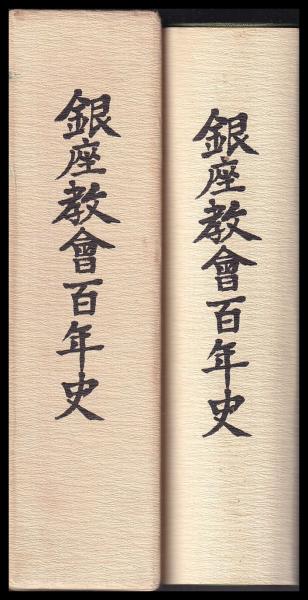 銀座教會百年史
銀座教會百年史